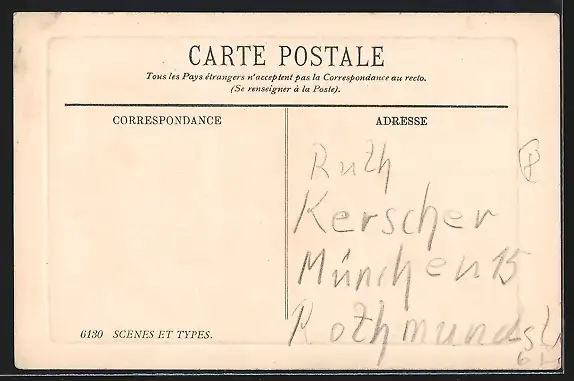 CARTE POSTALE
Tous les Pays étrangers n'acceptent pas la Correspondance au recto.
(Se renseigner à la Poste).
CORRESPONDANCE
ADRESSE
Ruth
Kerscher
München 15
Rothmundst
6
6130 SCENES ET TYPES.